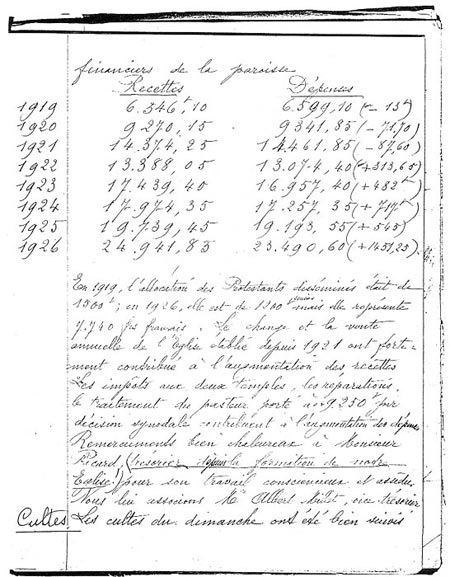 financiers de la paroisse
Recettes Dépenses
1919 6.346f,10 6.599,10 (- 13f)
1920 9270,15 9341,85 (- 71,70)
1921 14.374,25 14.461,85 (- 87,60)
1922 13.388,05 13.074,40 (+313,65)
1923 17.439,40 16.957,40 (+482f)
1924 17.974,35 17.257,35 (+717f)
1925 19.739,45 19.193,55 (+545)
1926 24.941,83 23.490,60 (+1451,23)
En 1919, l'allocation des Protestants disséminés était de
1500f; en 1926, elle est de 1200 mais elle représente
7.740 frs français. Le change et la vente
annuelle de l'Eglise établie depuis 1921 ont forte-
ment contribué à l'augmentation des recettes
Les impôts aux deux temples, les réparations,
le traitement du pasteur porté à 9.250f par
décision synodale contribuent à l'augmentation des dépenses
Remerciements bien chaleureux à Monsieur
Picard, (trésorier depuis la formation de notre
Eglise) pour son travail consciencieux et assidu.
Nous lui associons Mr Albert Millet, vice trésorier
Cultes Les cultes du dimanche ont été bien suivis